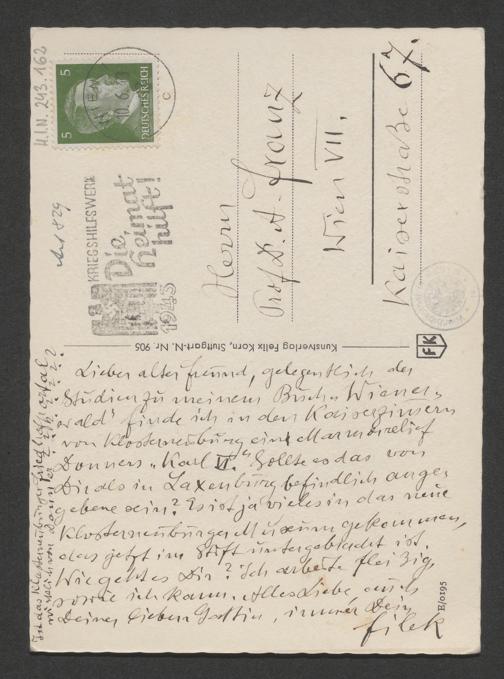 H.I.N. 243.162
5 5
DEUTSCHES REICH
WIEN
10.6.43
c
KRIEGSHILFSWERK
Die
Heimat
hilft!
1943
Herrn
Prof. D. A. Franz
Wien VII.
Kaiserstraße 67.
Kunstverlag Felix Korn, Stuttgart-N. Nr. 905
FK
Lieber alter Freund, gelegentlich der
Studien zu meinem Buch „Wiener-
wald" finde ich in den Kaiserzimmern
von Klosterneuburg ein Marmorrelief
Donners „Karl VI." Sollte es das von
Dir als in Laxenburg befindlich ange-
gebene sein? Es ist ja vieles in das neue
Klosterneuburger Museum gekommen,
das jetzt im Stift untergebracht ist.
Wie geht es Dir? Ich arbeite fleißig,
soviel ich kann. Alles Liebe auch
Deiner lieben Gattin, immer Dein
Filek
Ist das Klosterneuburger
wirklich von Donner???
E/0195